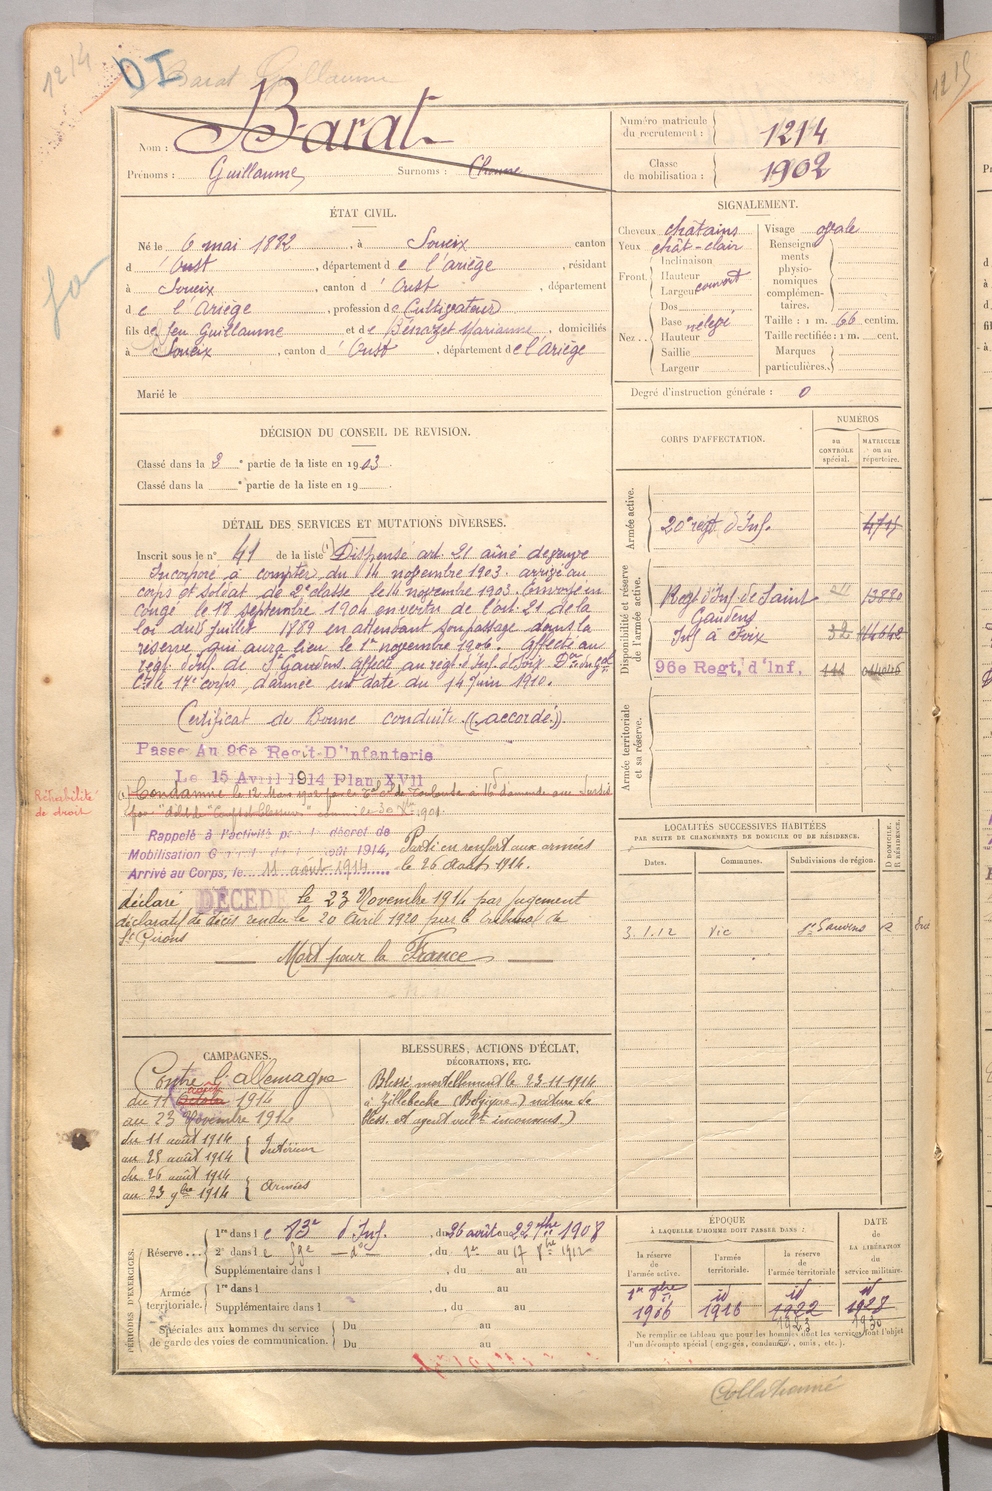 1214
DI
Barat Guillaume
Nom : Barat
Prénoms : Guillaume
Surnoms :
Numéro matricule du recrutement : 1214
Classe de mobilisation : 1902
ÉTAT CIVIL.
Né le 6 mai 1882, à Soueix canton
d' Oust, département de l'ariège, résidant
à Soueix, canton d' Oust, département
de l'ariège, profession de Cultivateur
fils de feu Guillaume et de Bénazet Marianne, domiciliés
à Soueix, canton d' Oust, département de l'ariège
Marié le
SIGNALEMENT.
Cheveux châtains
Yeux chât-clair
Front. Inclinaison
Hauteur
Largeur couvert
Nez .. Dos
Base relevé
Hauteur
Saillie
Largeur
Visage ovale
Renseignements physionomiques complémentaires.
Taille : 1 m. 66 centim.
Taille rectifiée : 1 m. cent.
Marques particulières.
Degré d'instruction générale : 0
DÉCISION DU CONSEIL DE REVISION.
Classé dans la 2e partie de la liste en 1903.
Classé dans la e partie de la liste en 19
DÉTAIL DES SERVICES ET MUTATIONS DIVERSES.
Inscrit sous le n° 41 de la liste (1) Dispensé art 21 aîné de veuve
Incorporé à compter du 14 novembre 1903. arrivé au
corps et soldat de 2e classe le 14 novembre 1903. Envoyé en
congé le 18 septembre 1904 en vertu de l'art. 21 de la
loi du 15 Juillet 1889 en attendant son passage dans la
réserve qui aura lieu le 1er novembre 1906. affecté au
regt d'Inf. de St Gaudens. affecté au régt d'Inf. de Foix Don du Gal
Ct le 17e corps d'armée en date du 14 Juin 1910.
Certificat de Bonne conduite ((accordé))
Passe Au 96e Regit-D'Infanterie
Le 15 Avril 1914 Plan XVII
Réhabilité de droit
Condamné le 12 Mars
Rappelé à l'activité par le décret de
Mobilisation Générale du 1er août 1914,
Arrivé au Corps, le 11 août 1914
Parti en renfort aux armées
le 26 Août 1914.
déclaré DÉCÉDÉ le 23 Novembre 1914 par jugement
déclaratif de décès rendu le 20 Avril 1920 par le tribunal de
St Girons
Mort pour la France
CORPS D'AFFECTATION.
NUMÉROS
au CONTRÔLE spécial.
MATRICULE ou au répertoire.
Armée active.
20e regt d'Inf.
Disponibilité et réserve de l'armée active.
Regt d'Inf. de Saint Gaudens
Inf à Foix
96e Regt, d'Inf,
Armée territoriale et sa réserve.
LOCALITÉS SUCCESSIVES HABITÉES
PAR SUITE DE CHANGEMENTS DE DOMICILE OU DE RÉSIDENCE.
Dates. Communes. Subdivisions de région. D DOMICILE. R RÉSIDENCE.
3.1.12 Vic St Gaudens R
CAMPAGNES.
Contre l'allemagne
du 11 août 1914
au 23 Novembre 1914
du 11 août 1914
au 25 août 1914 Intérieur
du 26 août 1914
au 23 9bre 1914 Armées
BLESSURES, ACTIONS D'ÉCLAT, DÉCORATIONS, ETC.
Blessé mortellement le 23-11 1914
à Zillebecke (Belgique) nature de
bless. et agent vult inconnus.)
PÉRIODES D'EXERCICES.
Réserve... 1re dans le 83e d'Inf., du 26 août au 22 7bre 1908
2e dans le 59e do, du 1er au 17 8bre 1912
Supplémentaire dans l , du au
Armée territoriale. 1re dans l , du au
Supplémentaire dans l , du au
Spéciales aux hommes du service de garde des voies de communication. Du au
Du au
ÉPOQUE
À LAQUELLE L'HOMME DOIT PASSER DANS :
la réserve de l'armée active. l'armée territoriale. la réserve de l'armée territoriale
DATE de LA LIBÉRATION du service militaire.
1er 9bre 1906
id 1916
id 1922
id 1928
1923
1930
Ne remplir ce tableau que pour les hommes dont les services font l'objet
d'un décompte spécial (engagés, condamnés, omis, etc.).
Collationné